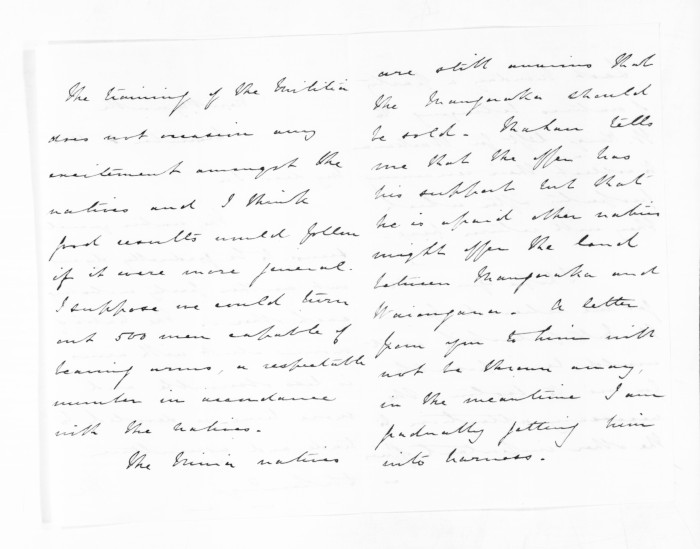 The training of the Militia
does not occasion any
excitement amongst the
natives and I think
good results would follow
if it were more general.
I suppose we could turn
out 500 men capable of
bearing arms, a respectable
number in accordance
with the natives.
The Ninia natives
are still anxious that
the Mangaraka should
be sold. tells
me that the offer has
his support but that
he is afraid other natives
might offer the land
between Mangaraka and
Waiongana. A letter
from you to him will
not be thrown away,
in the meantime I am
gradually getting him
into harness.